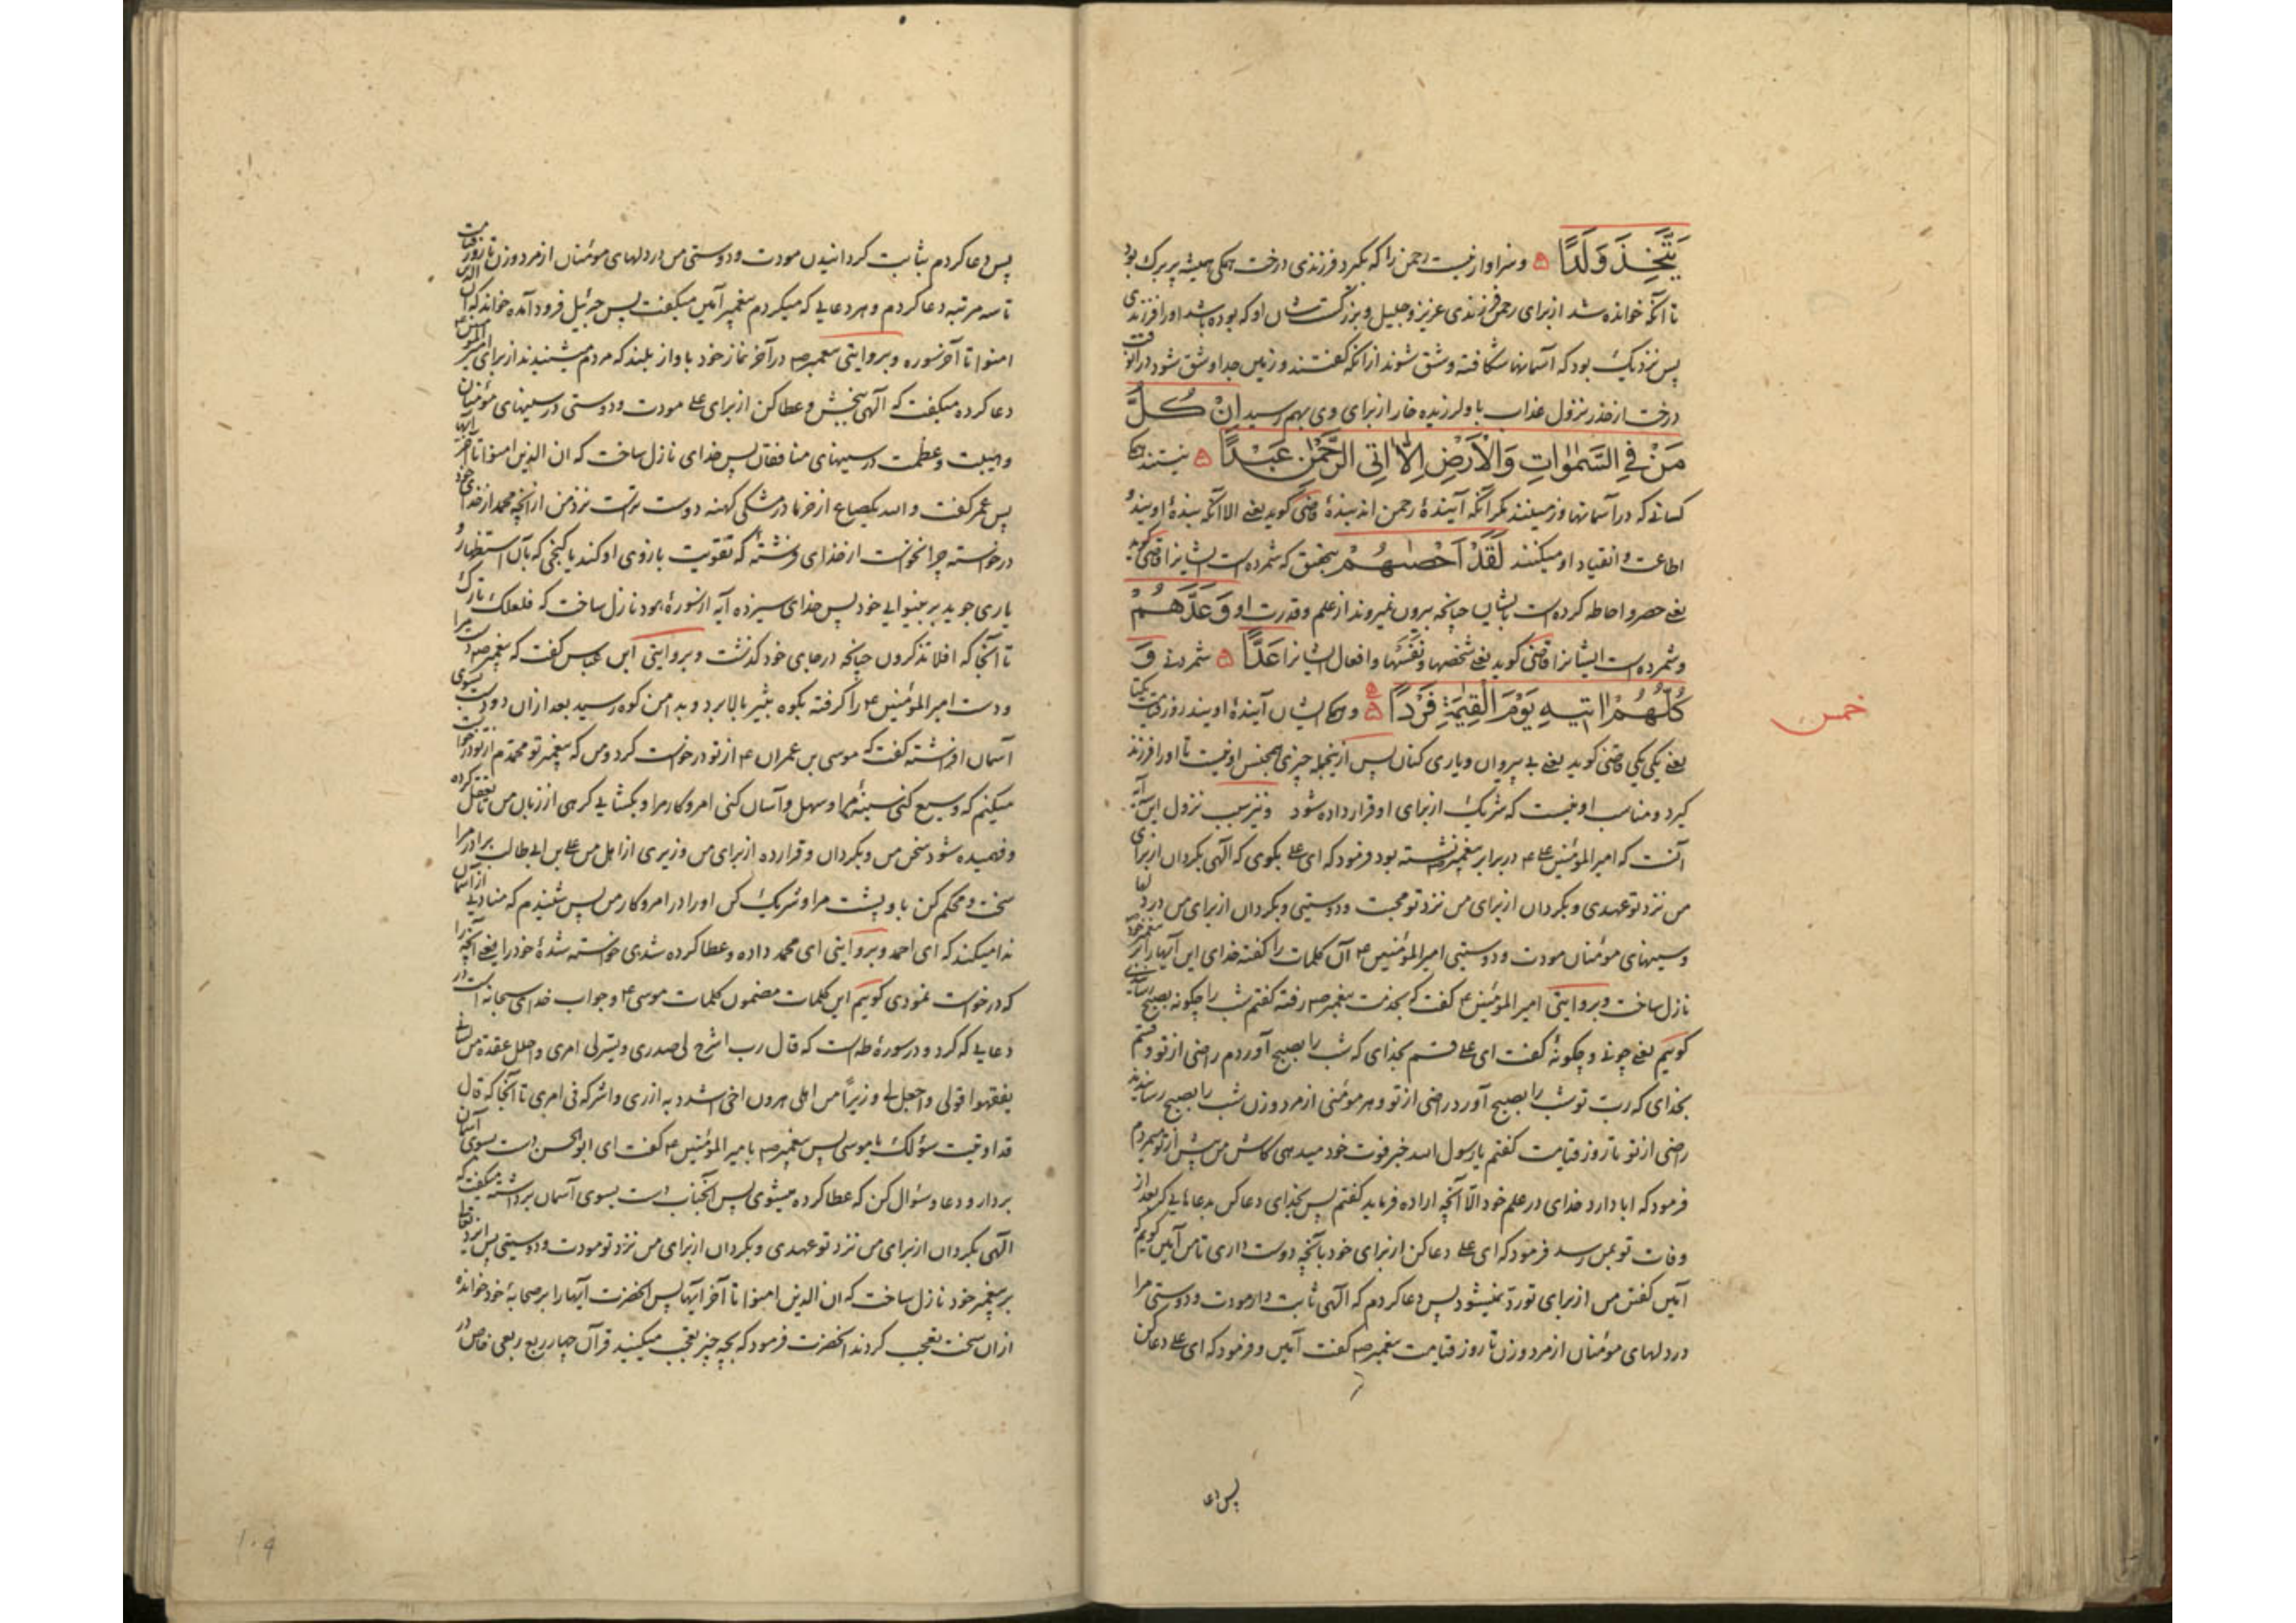 يَتَّخِذَ وَلَدًا ۵ و سزاوار نیست رحمن را که بگیرد فرزندی درخت همگی همیشه پر برک بود
تا آنکه خوانده شد از برای رحمن فرزندی عزیز و جلیل و بزرگست شان او که بوده باشد او را فرزندی
پس نزدیک بود که آسمانها شکافته و شق شوند از آنکه گفتند و زمین جدا و شق شود در آنوقت
درخت از حذر نزول عذاب با و لرزیده خار از برای وی بهم رسید اِنْ كُلُّ
مَنْ فِي السَّمٰوَاتِ وَالْاَرْضِ اِلَّا اٰتِي الرَّحْمٰنِ عَبْدًا ۵ نیستند همگی
کسانی که در آسمانها و زمینند مگر آنکه آیندهٔ رحمن اند بندهٔ قاضی گوید یعنی الا آنکه بندهٔ اویند و
اطاعت و انقیاد او میکنند لَقَدْ اَحْصٰىهُمْ بتحقیق که شمرده است ایشانرا قاضی گوید
یعنی حصر و احاطه کرده است بایشان چنانچه بیرون نمیروند از علم و قدرت او وَعَدَّهُمْ
و شمرده است ایشانرا قاضی گوید یعنی شخصها و نفسها و افعال ایشانرا عَدًّا ۵ شمردنی وَ
كُلُّهُمْ اٰتِيهِ يَوْمَ الْقِيٰمَةِ فَرْدًا ۵ و همگی ایشان آیندهٔ اویند روز قیامت یکتا
خمس
یعنی یکی یکی قاضی گوید یعنی بی پیروان و یاری کنان پس از اینجمله چیزی همجنس او نیست تا او را فرزند
گیرد و مناسب او نیست که شریک از برای او قرار داده شود و نیز سبب نزول این آیه
آنست که امیر المؤمنین علی ع در برابر پیغمبر ص نشسته بود فرمود که ای علی بگوی که الهی بگردان از برای
من نزد تو عهدی و بگردان از برای من نزد تو محبت و دوستیی و بگردان از برای من در دلها
و سینهای مومنان مودت و دوستیی امیر المؤمنین ع آن کلمات را گفته خدای این آیها را بر پیغمبر خود
نازل ساخت و بروایتی امیر المؤمنین ع گفت که بخدمت پیغمبر ص رفته گفتم شب را چگونه بصبح رسانیدی
گوییم یعنی چونی و چگونهٔ گفت ای علی قسم بخدای که شب را بصبح آوردم راضی از تو و قسم
بخدای که رب تو شب را بصبح آورد راضی از تو و هر مومنی از مرد و زن شب را بصبح رسانیدند
راضی از تو تا روز قیامت گفتم یا رسول الله خبر فوت خود میدهی کاش من پیش از تو میمردم
فرمود که ابا دارد خدای در علم خود الّا آنچه اراده فرماید گفتم پس بخدای دعا کن بدعاهایی که بعد از
وفات تو بمن رسد فرمود که ای علی دعا کن از برای خود بآنچه دوست داری تا من آمین گویم که
آمین گفتن من از برای تو رد نمیشود پس دعا کردم که الهی ثابت دار مودت و دوستی مرا
در دلهای مومنان از مرد و زن تا روز قیامت پیغمبر ص گفت آمین و فرمود که ای علی دعا کن
پس دعا
پس دعا کردم بثابت گردانیدن مودت و دوستی من در دلهای مومنان از مرد و زن تا روز قیامت
تا سه مرتبه دعا کردم و هر دعایی که میکردم پیغمبر آمین میگفت پس جبرئیل فرود آمده خواند که ان الذین
امنوا تا آخر سوره و بروایتی پیغمبر ص در آخر نماز خود باواز بلند که مردم میشنیدند از برای امیر المؤمنین ع
دعا کرده میگفت که الهی ببخش و عطا کن از برای علی مودت و دوستی در سینهای مؤمنان
و هیبت و عظمت در سینهای منافقان پس خدای نازل ساخت که ان الذین امنوا تا آخر آیها
پس عمر گفت والله یکصاع از خرما در مشکی کهنه دوست ترست نزد من از آنچه محمد از خدای خود
درخواسته چرا نخواست از خدای فرشتهٔ که تقویت بازوی او کند یا گنجی که بآن استظهار و
یاری جوید بر بینوایی خود پس خدای سیزده آیه از سورهٔ هود نازل ساخت که فلعلک تارک
تا آنجا که افلا تذکرون چنانچه در جای خود گذشت و بروایتی ابن عباس گفت که پیغمبر ص دست مرا
و دست امیر المؤمنین ع را گرفته بکوه بثیر بالا برد و بدامن کوه رسید بعد از ان دو دست بسوی
آسمان افراشته گفت که موسی بن عمران ع از تو درخواست کرد و من که پیغمبر تو محمدم از تو درخواست
میکنم که وسیع کنی سینهٔ مرا و سهل و آسان کنی امر و کار مرا و بگشایی گرهی از زبان من تا تعقل کرده
و فهمیده شود سخن من و بگردان و قرار ده از برای من وزیری از اهل من علی بن ابی طالب برادر مرا
سخت و محکم کن باو پشت مرا و شریک کن او را در امر و کار من پس شنیدم که منادیی از آسمان
ندا میکند که ای احمد و بروایتی ای محمد داده و عطا کرده شدی خواسته شدهٔ خود را یعنی آنچه را
که درخواست نمودی گوییم این کلمات مضمون کلمات موسی ع و جواب خدای سبحانه است در
دعایی که کرد و در سورهٔ طه است که قال رب اشرح لی صدری و یسر لی امری و احلل عقدة من لسانی
یفقهوا قولی و اجعل لی وزیراً من اهلی هرون اخی اشدد به ازری و اشرکه فی امری تا آنجا که قال
قد اوتیت سؤلک یا موسی پس پیغمبر ص با میر المؤمنین ع گفت ای ابو الحسن دست بسوی آسمان
بردار و دعا و سؤال کن که عطا کرده میشوی پس آنجناب دست بسوی آسمان برداشته میگفت که
الهی بگردان از برای من نزد تو عهدی و بگردان از برای من نزد تو مودت و دوستیی پس ایزد تعالی
بر پیغمبر خود نازل ساخت که ان الذین امنوا تا آخر آیها پس آنحضرت آیها را بر صحابهٔ خود خوانده
از ان سخت تعجب کردند آنحضرت فرمود که بچه چیز تعجب میکنید قرآن چهار ربع ربعی خاص در
۱۰۹